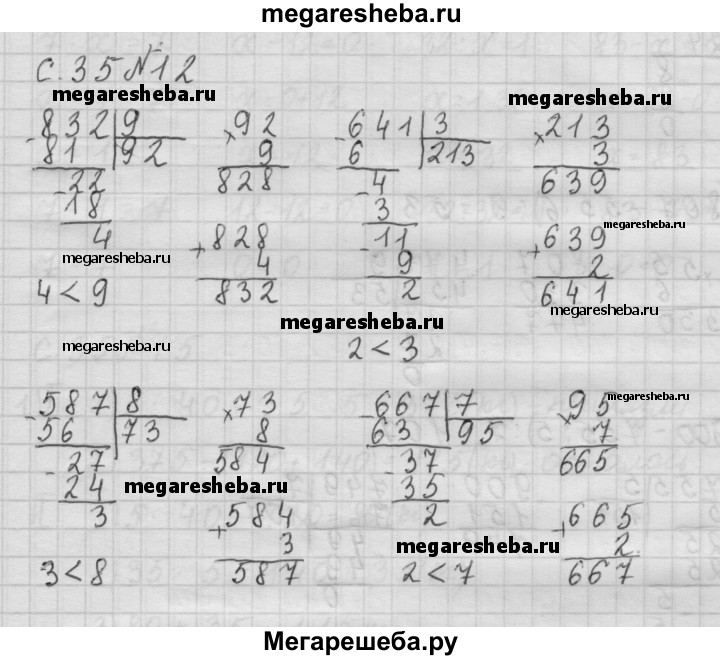 megaresheba.ru
с. 35 №12
megaresheba.ru megaresheba.ru
- 832 | 9   × 92   - 641 | 3   × 213
81 | 92   9   6 | 213   3
- 22   828   - 4   639
18   3
4   + 828   - 11   + 639
megaresheba.ru   4   9   2   megaresheba.ru
4 < 9   832   2   641   megaresheba.ru
megaresheba.ru
megaresheba.ru   2 < 3
- 587 | 8   × 73   - 667 | 7   × 95   megaresheba.ru
56 | 73   8   63 | 95   7
- 27   584   - 37   665
24   megaresheba.ru   35
3   + 584   2   megaresheba.ru   + 665
3   megaresheba.ru   2
3 < 8   587   2 < 7   667
Мегарешеба.ру